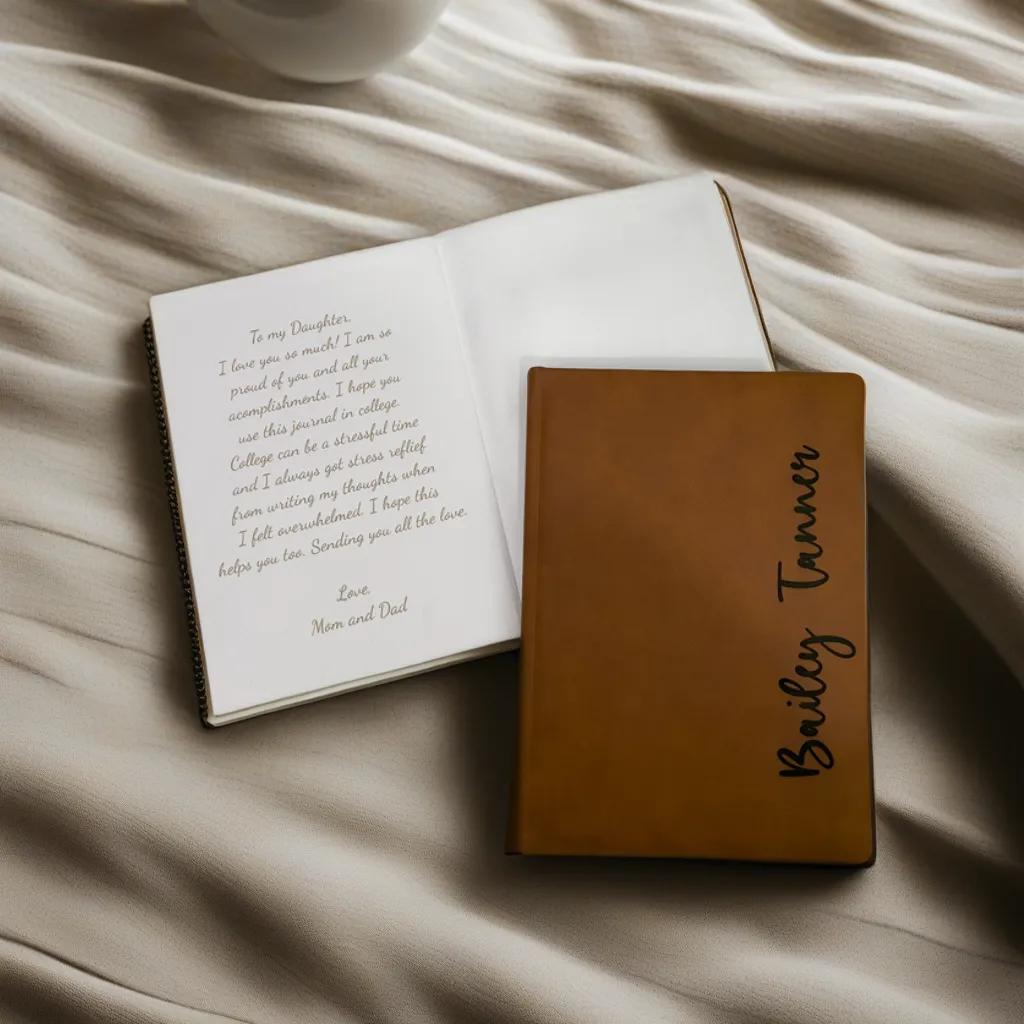 To my Daughter,
I love you so much! I am so
proud of you and all your
acomplishments. I hope you
use this journal in college.
College can be a stressful time
and I always got stress reflief
from writing my thoughts when
I felt overwhelmed. I hope this
helps you too. Sending you all the love.
Love,
Mom and Dad
Bailey Tanner